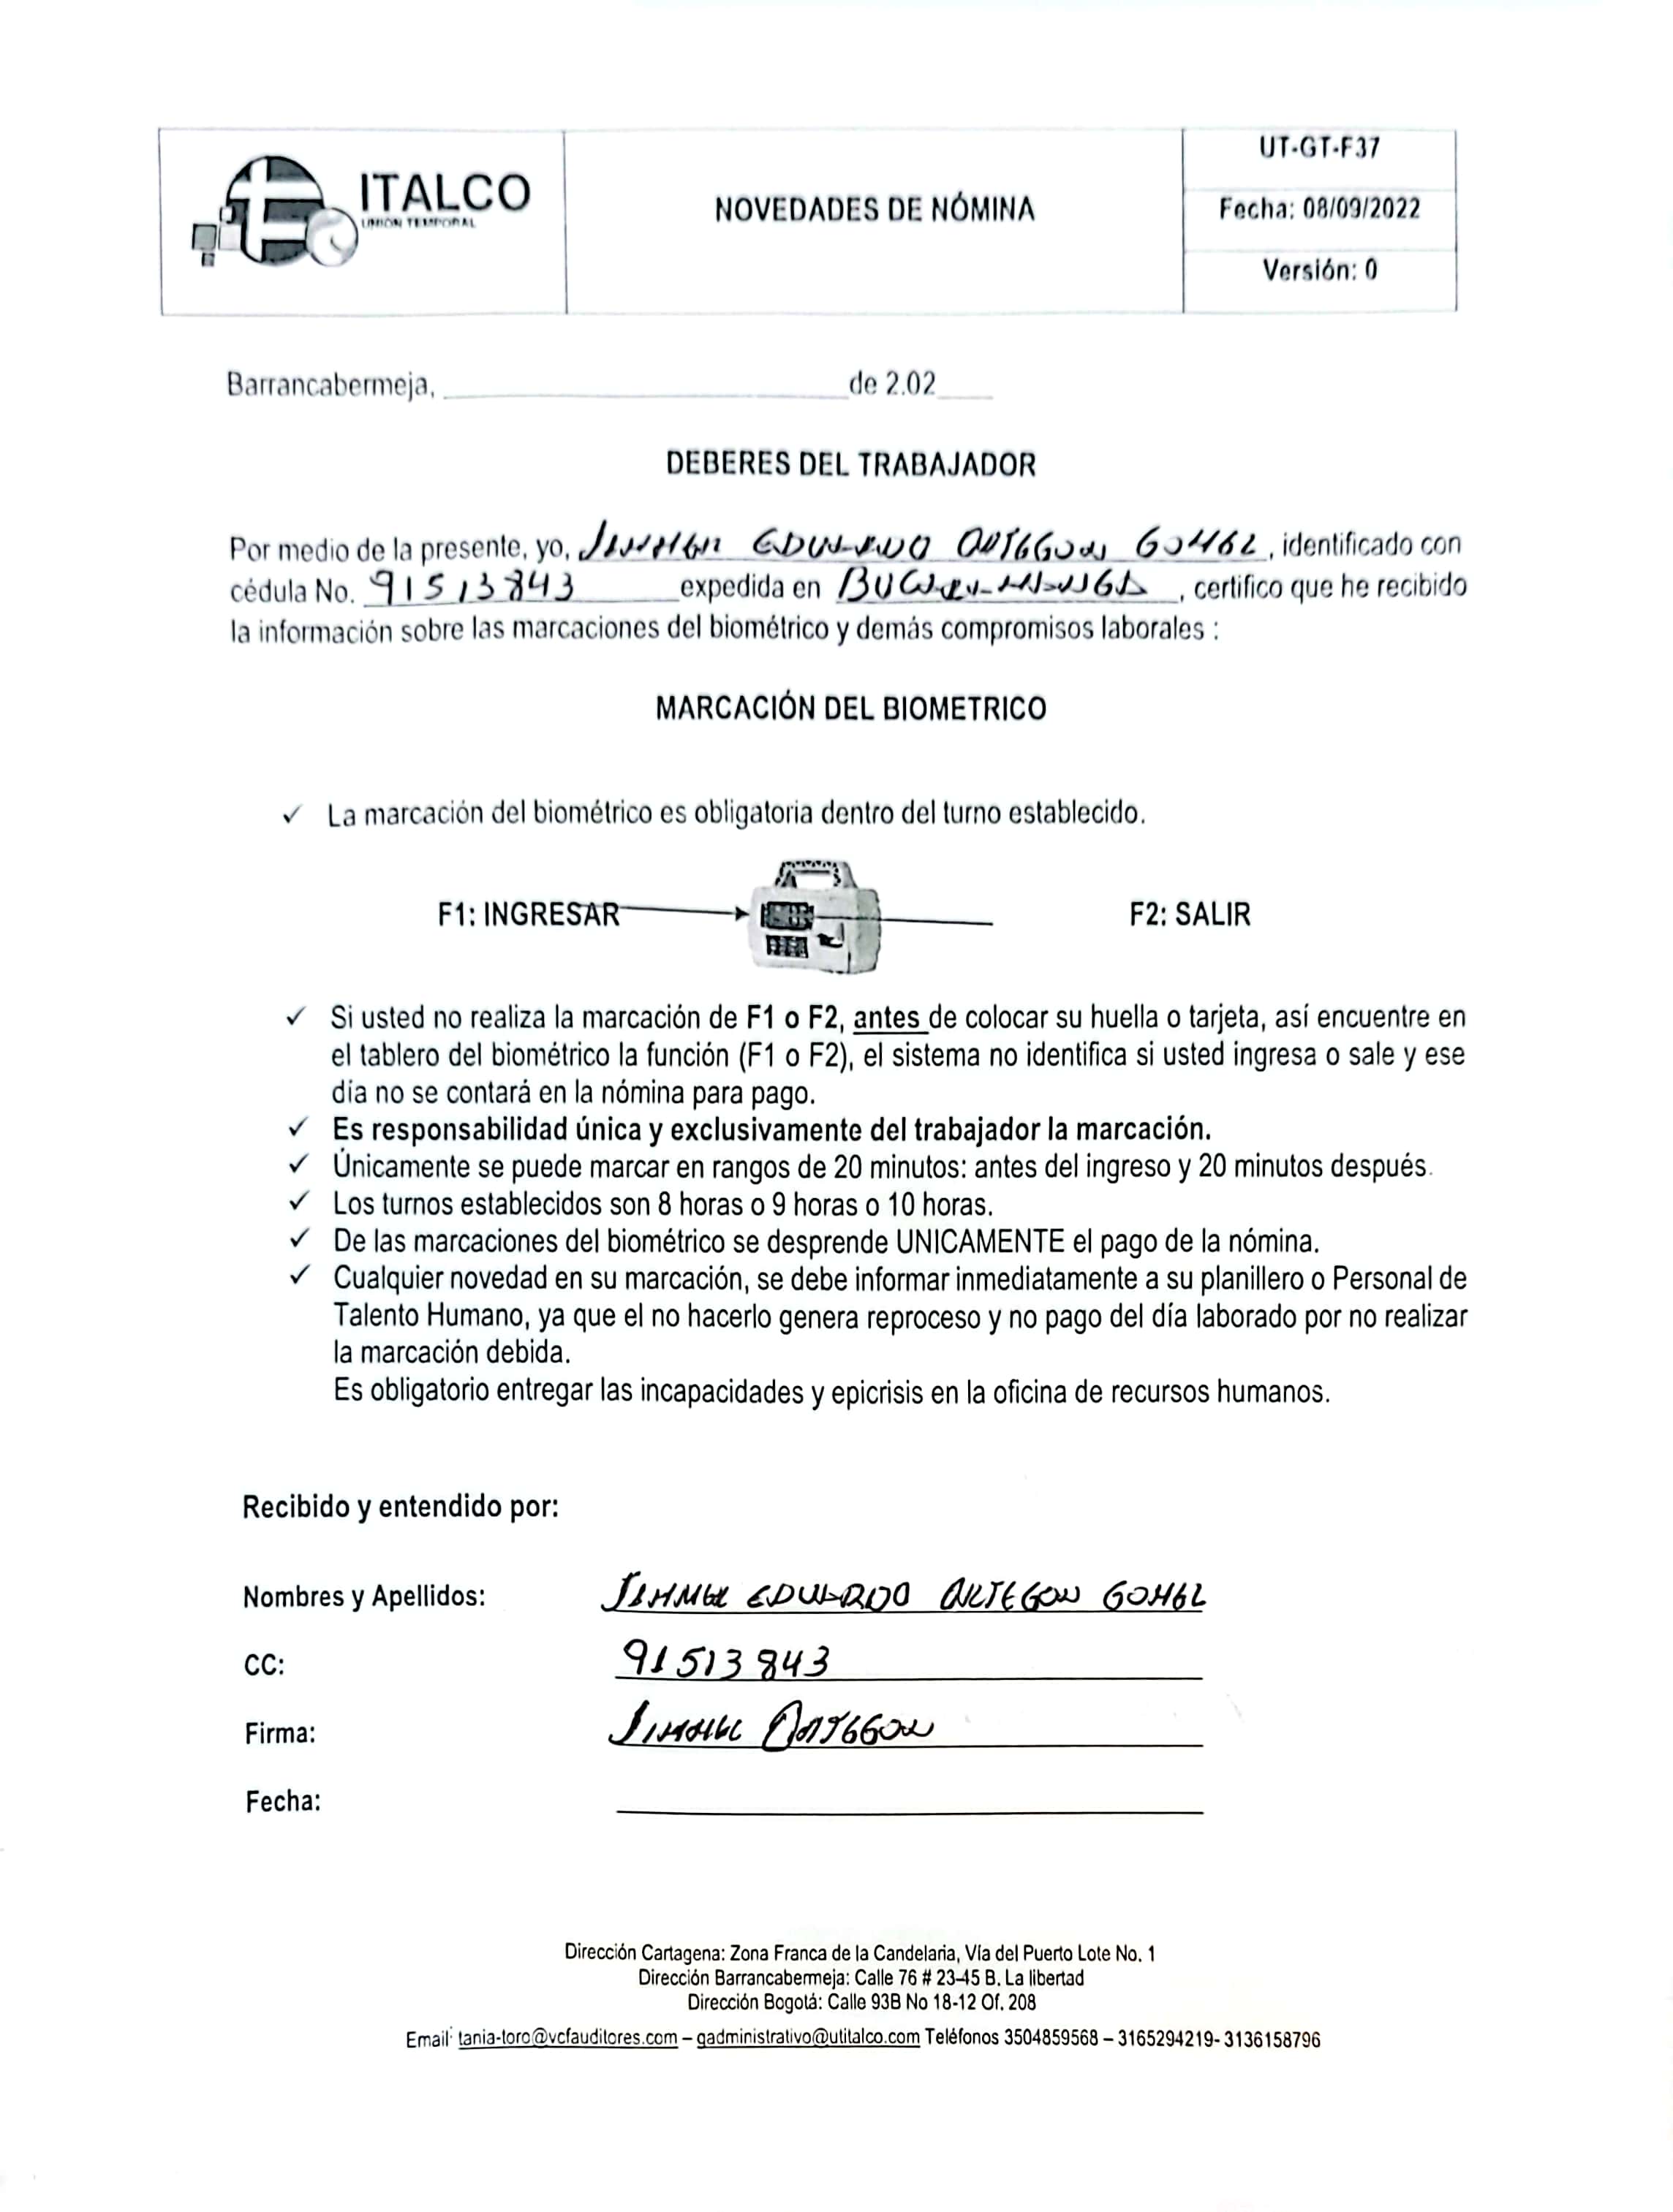 ITALCO
UNIÓN TEMPORAL
NOVEDADES DE NÓMINA
UT-GT-F37
Fecha: 08/09/2022
Versión: 0
Barrancabermeja, ____________________de 2.02____
DEBERES DEL TRABAJADOR
Por medio de la presente, yo, EDUARDO ORTEGON GOMEZ, identificado con
cédula No. 91513843 expedida en BUCARAMANGA, certifico que he recibido
la información sobre las marcaciones del biométrico y demás compromisos laborales :
MARCACIÓN DEL BIOMETRICO
✓ La marcación del biométrico es obligatoria dentro del turno establecido.
F1: INGRESAR F2: SALIR
✓ Si usted no realiza la marcación de F1 o F2, antes de colocar su huella o tarjeta, así encuentre en
el tablero del biométrico la función (F1 o F2), el sistema no identifica si usted ingresa o sale y ese
día no se contará en la nómina para pago.
✓ Es responsabilidad única y exclusivamente del trabajador la marcación.
✓ Únicamente se puede marcar en rangos de 20 minutos: antes del ingreso y 20 minutos después.
✓ Los turnos establecidos son 8 horas o 9 horas o 10 horas.
✓ De las marcaciones del biométrico se desprende UNICAMENTE el pago de la nómina.
✓ Cualquier novedad en su marcación, se debe informar inmediatamente a su planillero o Personal de
Talento Humano, ya que el no hacerlo genera reproceso y no pago del día laborado por no realizar
la marcación debida.
Es obligatorio entregar las incapacidades y epicrisis en la oficina de recursos humanos.
Recibido y entendido por:
Nombres y Apellidos: EDUARDO ORTEGON GOMEZ
CC: 91513843
Firma: ORTEGON
Fecha:
Dirección Cartagena: Zona Franca de la Candelaria, Vía del Puerto Lote No. 1
Dirección Barrancabermeja: Calle 76 # 23-45 B. La libertad
Dirección Bogotá: Calle 93B No 18-12 Of. 208
Email: tania-toro@vcfauditores.com – gadministrativo@utitalco.com Teléfonos 3504859568 – 3165294219- 3136158796